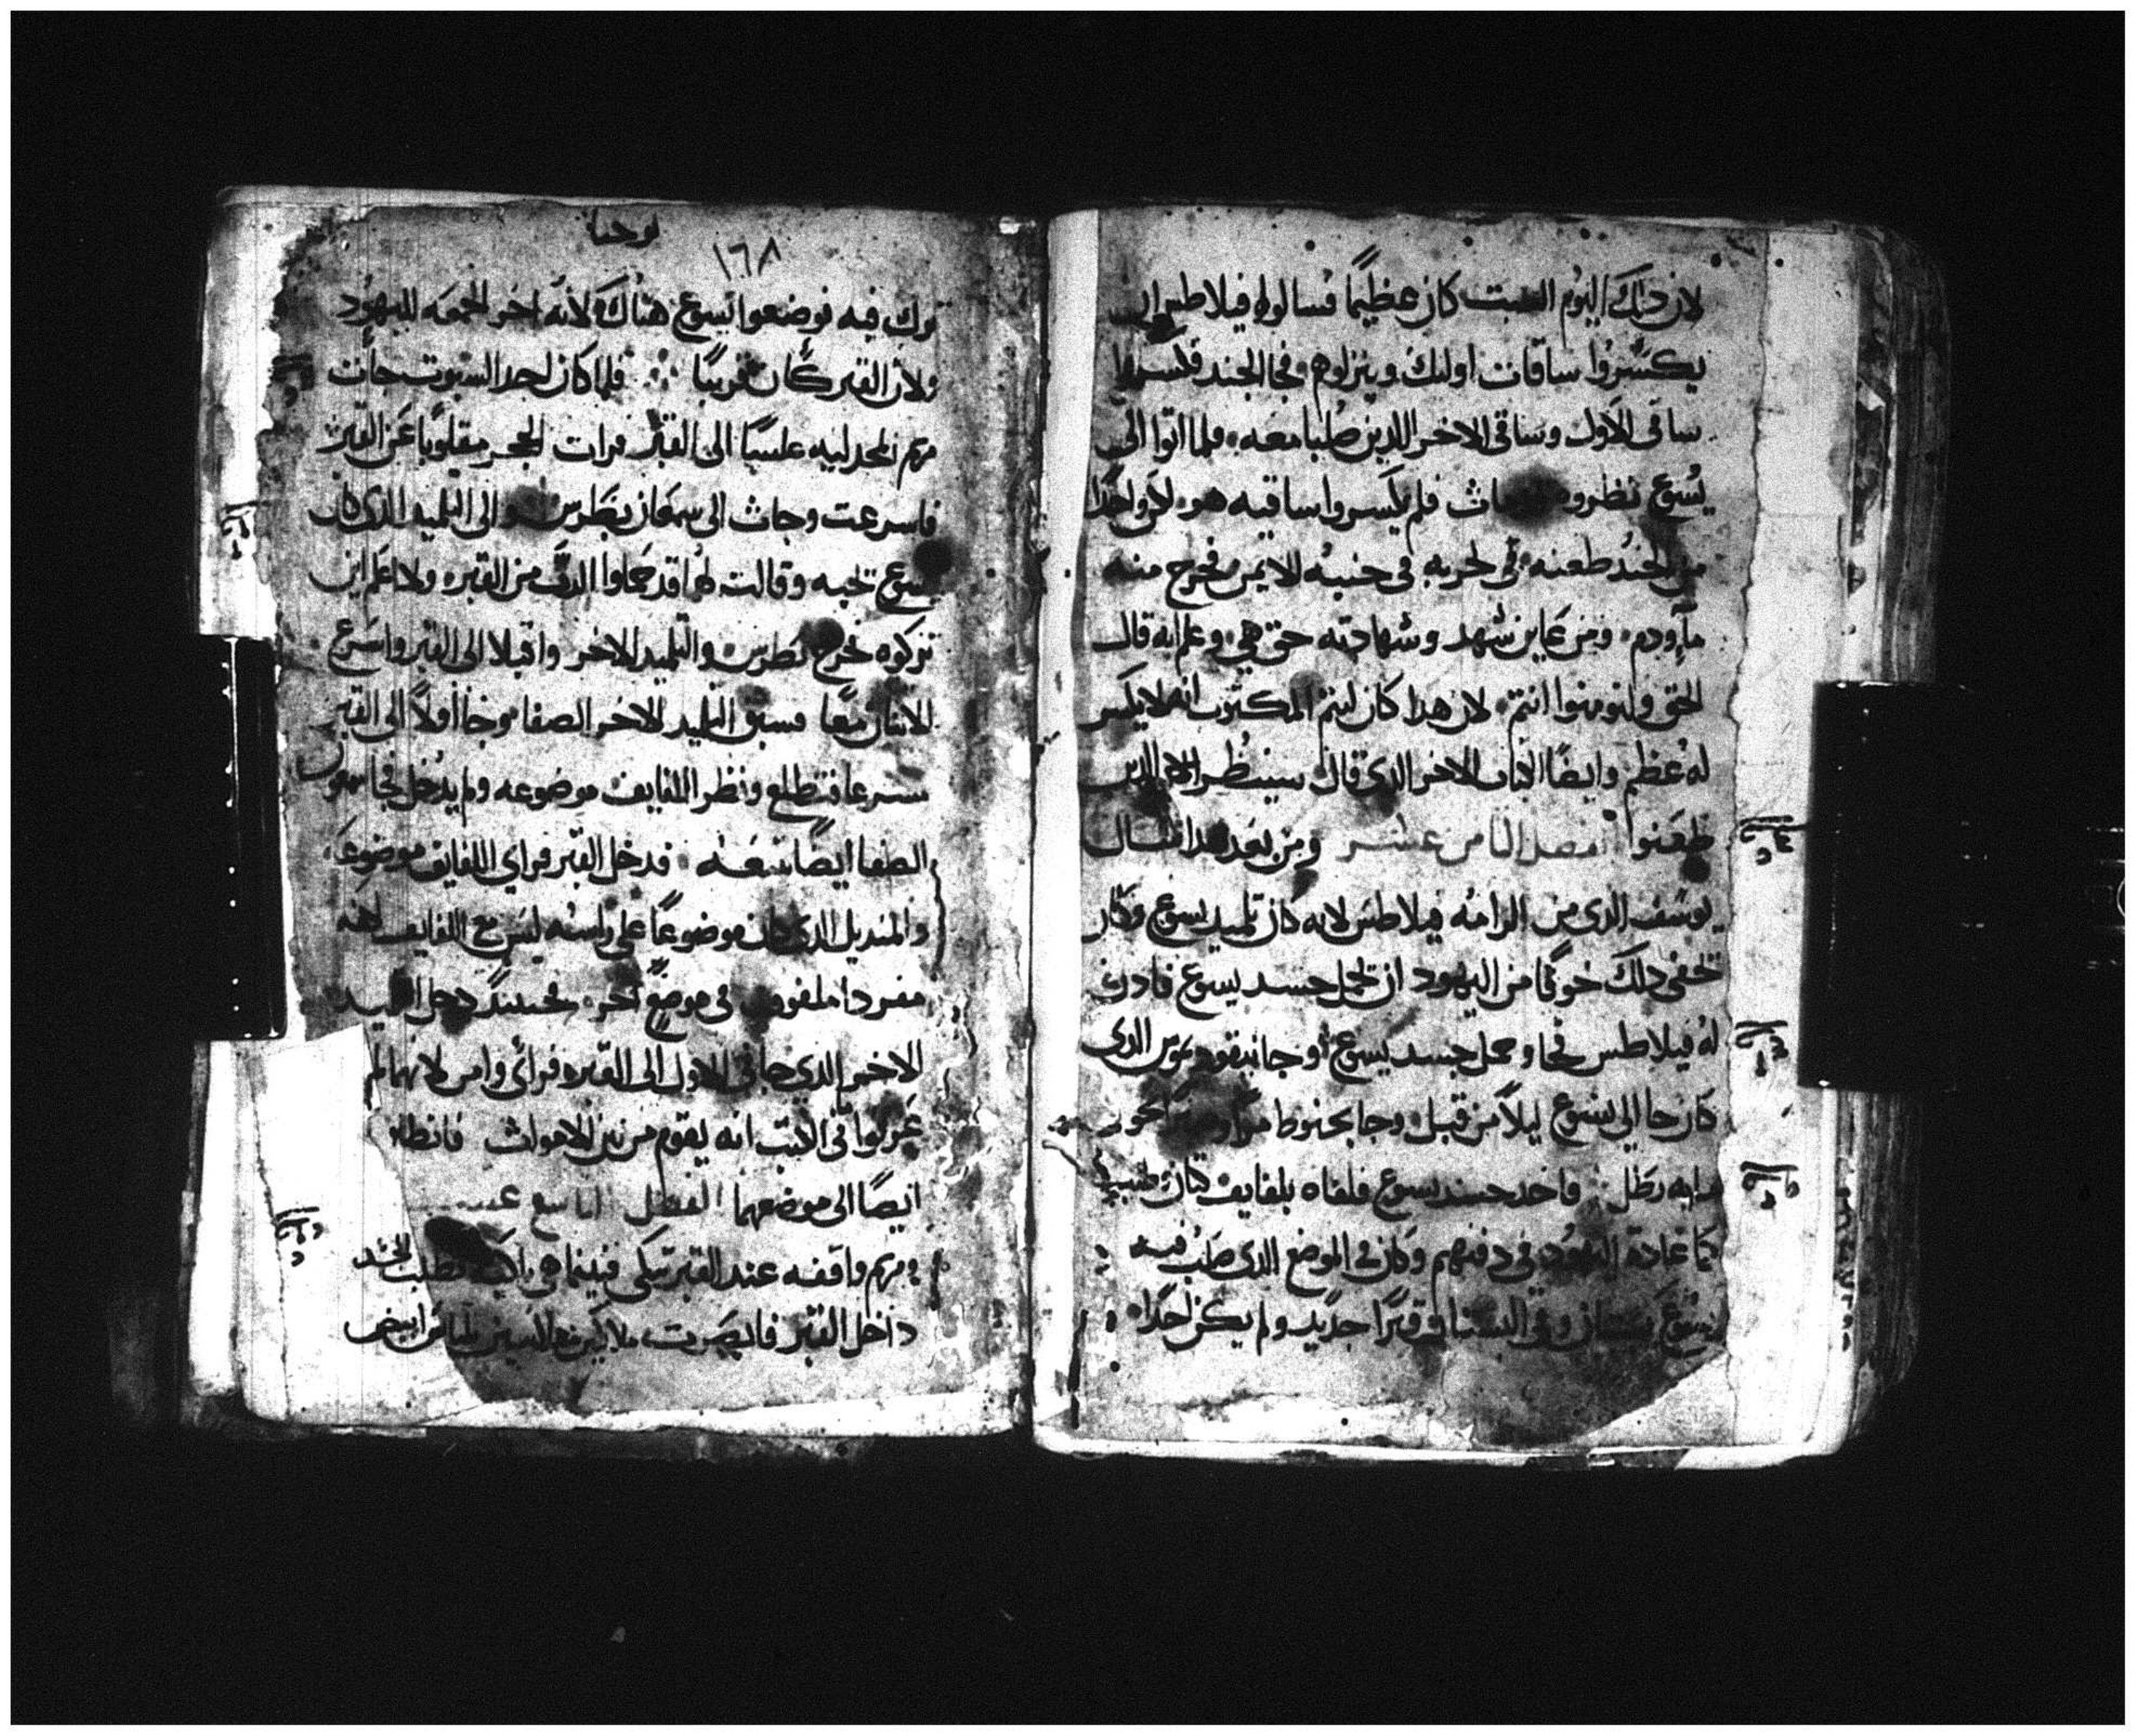 لان ذلك اليوم السبت كان عظيمًا فسالوا فيلاطس ان
يكسروا ساقات اوليك وينزلوهم فجا الجند فكسروا
ساقى الاول وساقى الاخر اللدين صلبا معه فلما اتوا الى
يسوع نظروه مات فلم يكسروا ساقيه هو لكن واحدًا
من الجند طعنه فى لحربه فى جنبه الايمن فخرج منه
مآ ودم ومن عاين شهد وشهادته حق هي وعلم انه قال
الحق ولتومنوا انتم لان هدا كان ليتم المكتوب انه لا يكسر
له عظم وايضًا الكتاب الاخر الدى قال سينظروا الى الدين
طعنوا الفصل الثامن عشر ومن بعد هدا سال
يوسف الدى من الرامه فيلاطس لانه كان تلميد يسوع وكان
تخفى دلك خوفًا من اليهود ان يحمل جسد يسوع فادن
له فيلاطس فجا وحمل جسد يسوع وجا نيقوديموس الدى
كان جا الى يسوع ليلًا من قبل وجا بحنوط نحو
مايه رطل واخد جسد يسوع فلفاه بلفايف كتان
كما عادة اليهود فى دفنهم وكان فى الموضع الدى صلب فيه
يسوع بستان وفى البستان قبرًا جديد ولم يكن احدًا
يوحنا
١٦٨
ترك فيه فوضعوا يسوع هناك لانه اخر الجمعه لليهود
ولان القبر كان قريبًا فلما كان احد السبوت جات
مريم المجدليه غلسًا الى القبر فرات الحجر مقلوبًا عن القبر
فاسرعت وجات الى سمعان بطرس والى التلميد الدى كان
يسوع تحبه وقالت لهم قد حملوا الرب من القبر ولا اعلم اين
تركوه فخرج بطرس والتلميد الاخر واقبلا الى القبر واسرع
الاتنان معًا فسبق التلميد الاخر الصفا وجا اولًا الى القبر
مسرعا فتطلع ونظر اللفايف موضوعه ولم يدخل فجا سمعون
الصفا ايضًا تبعه فدخل القبر فراي اللفايف موضوعه
والمنديل الدى كان موضوعًا على راسه ليس مع اللفايف لكنه
مفردا ملفوف فى موضع اخر فحينيد دخل التلميد
الاخر الدي جا فى الاول الى القبر فراى وامن لانهما لم
يعرفوا فى الكتب انه يقوم من بين الاموات فانطلقا
ايضًا الى موضعهما الفصل التاسع عشر
ومريم واقفه عند القبر تبكى فبينما هي باكيه تطلعت
داخل القبر فابصرت ملاكين جالسين بلباس ابيض